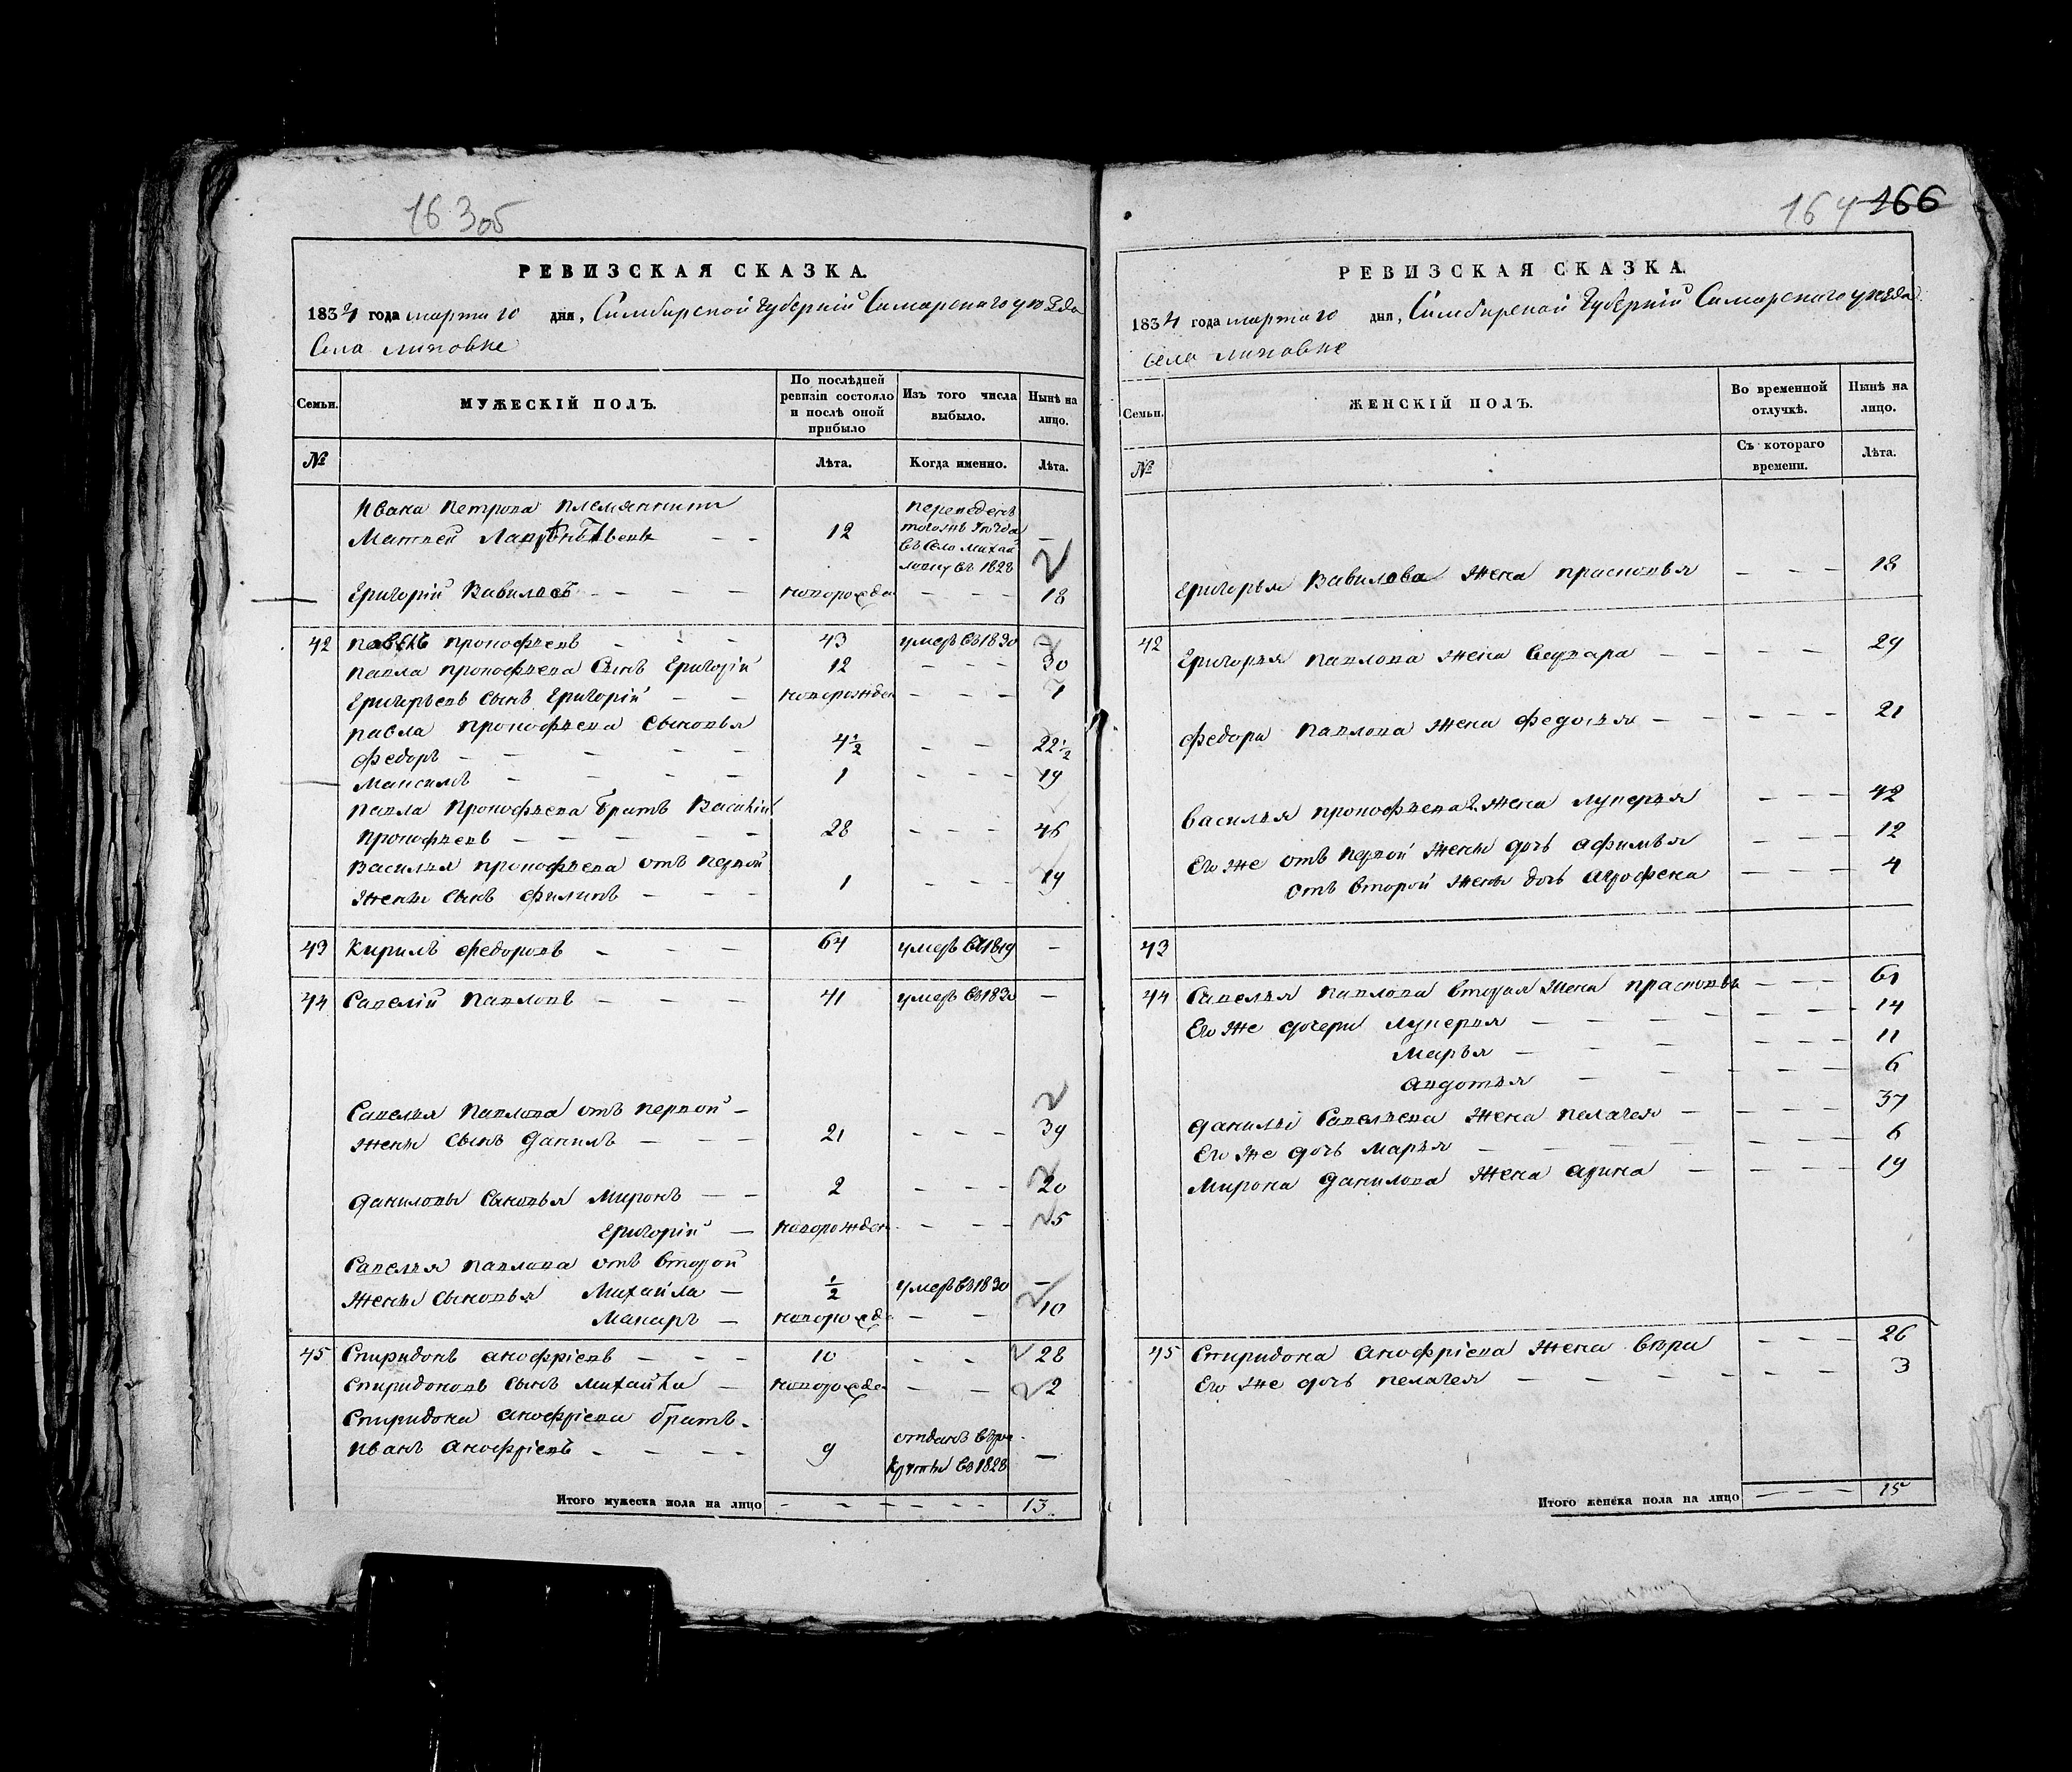 163об
РЕВИЗСКАЯ СКАЗКА.
1834 года марта 10 дня, Симбирской губерніи Самарскаго уѣзда
Села липовке
Семьи.
МУЖЕСКІЙ ПОЛЪ.
По послѣдней ревизіи состояло и послѣ оной прибыло
Изъ того числа выбыло.
Нынѣ на лицо.
№
Лѣта.
Когда именно.
Лѣта.
Ивана Петрова племянники
Матвей 12 переведенъ тогожъ уѣзда въ село михайловку въ 1828 —
Григорій Вавиловъ — — — новорожден — — — 18
42 павелъ прокофьевъ — — — 43 умеръ въ 1830 —
павла прокофьева сынъ Григорій 12 — — — 30
Григорьевъ сынъ Григорій — — новорожден — — — 1
павла прокофьева сыновья
федоръ — — — — 4 1/2 — — 22 1/2
Максимъ — — — — 1 — — — 19
павла прокофьева братъ Василій
прокофьевъ — — — — 28 — — — 46
Василья прокофьева отъ первой
жены сынъ филипъ — — — 1 — — — 19
43 Кирилъ федоровъ — — — 64 умеръ въ 1819 —
44 Савелій павловъ — — — 41 умеръ въ 1830 —
Савелья павлова отъ первой —
жены сынъ данилъ — — — 21 — — — 39
даниловы сыновья Миронъ — — 2 — — — 20
Григорій — новорожден — — — 5
Савелья павлова отъ второй
жены сыновья Михайла — 1/2 умеръ въ 1830 —
Макаръ — новорожде — — 10
45 Спиридонъ анофріевъ — — — 10 — — 28
Спиридоновъ сынъ михайла — новорожде — — 2
Спиридона анофріева братъ —
иванъ анофріевъ — — — — 9 отданъ въ рекруты въ 1828 —
Итого мужеска пола на лицо — — — — — 13.
164 166
РЕВИЗСКАЯ СКАЗКА.
1834 года марта 10 дня, Симбирской губерніи Самарскаго уѣзда
села липовке
Семьи.
ЖЕНСКІЙ ПОЛЪ.
Во временной отлучкѣ.
Нынѣ на лицо.
№
Съ котораго времени.
Лѣта.
Григорья Вавилова жена прасковья — — — 18
42 Григорья павлова жена — — — — 29
федора павлова жена федосья — — — — — 21
Василья прокофьева 2 жена лукерья — — — 42
Его же отъ первой жены дочь афимья — — — 12
отъ второй жены дочь агрофена — — — 4
43
44 Савелья павлова вторая жена прасковья — — — 61
Его же дочери лукерья — — — — — — — 14
Марья — — — — — — 11
авдотья — — — — — 6
данилы Савельева жена пелагея — — — — 37
Его же дочь марья — — — — — — 6
Мирона данилова жена арина — — — — 19
45 Спиридона анофріева жена вѣра — — — 26
Его же дочь пелагея — — — — — — 3
Итого женска пола на лицо — — — 15